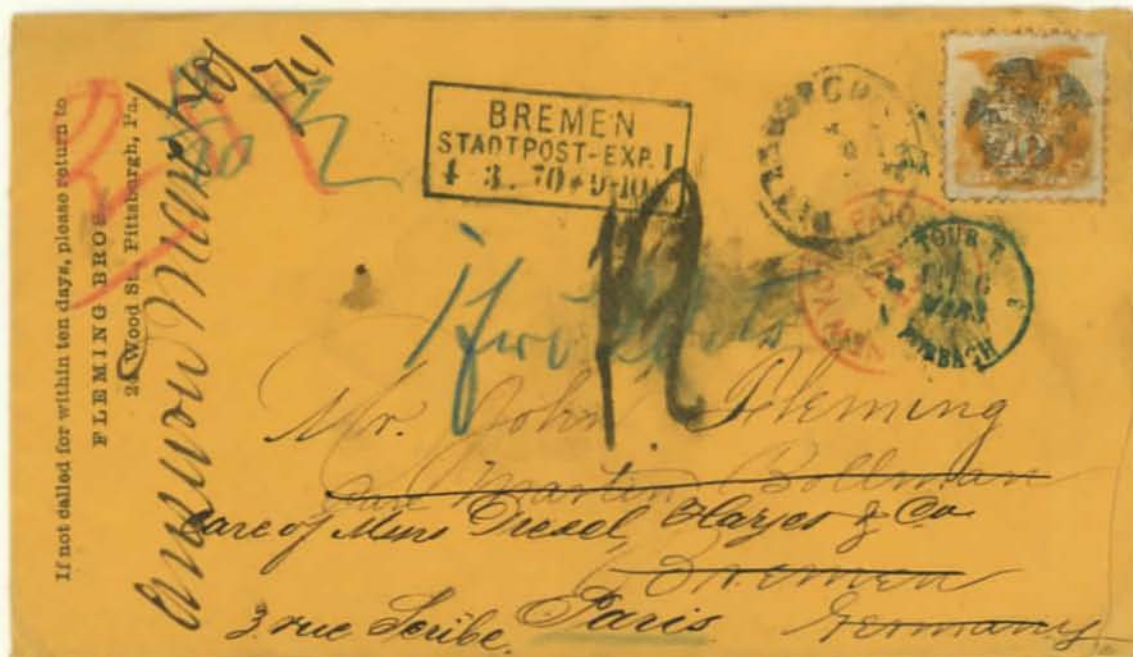 If not called for within ten days, please return to
FLEMING BROS.
24 Wood St., Pittsburgh, Pa.
BREMEN
STADTPOST-EXP. I
4 3. 70 * 9-10
PITTSBURGH
PAID
NEW YORK
TOUR T
MARS
FORBACH
Mr. John Fleming
Martin Bollman
care of Mess Drexel, Harjes & Co
Bremen
3 rue Scribe. Paris
Germany